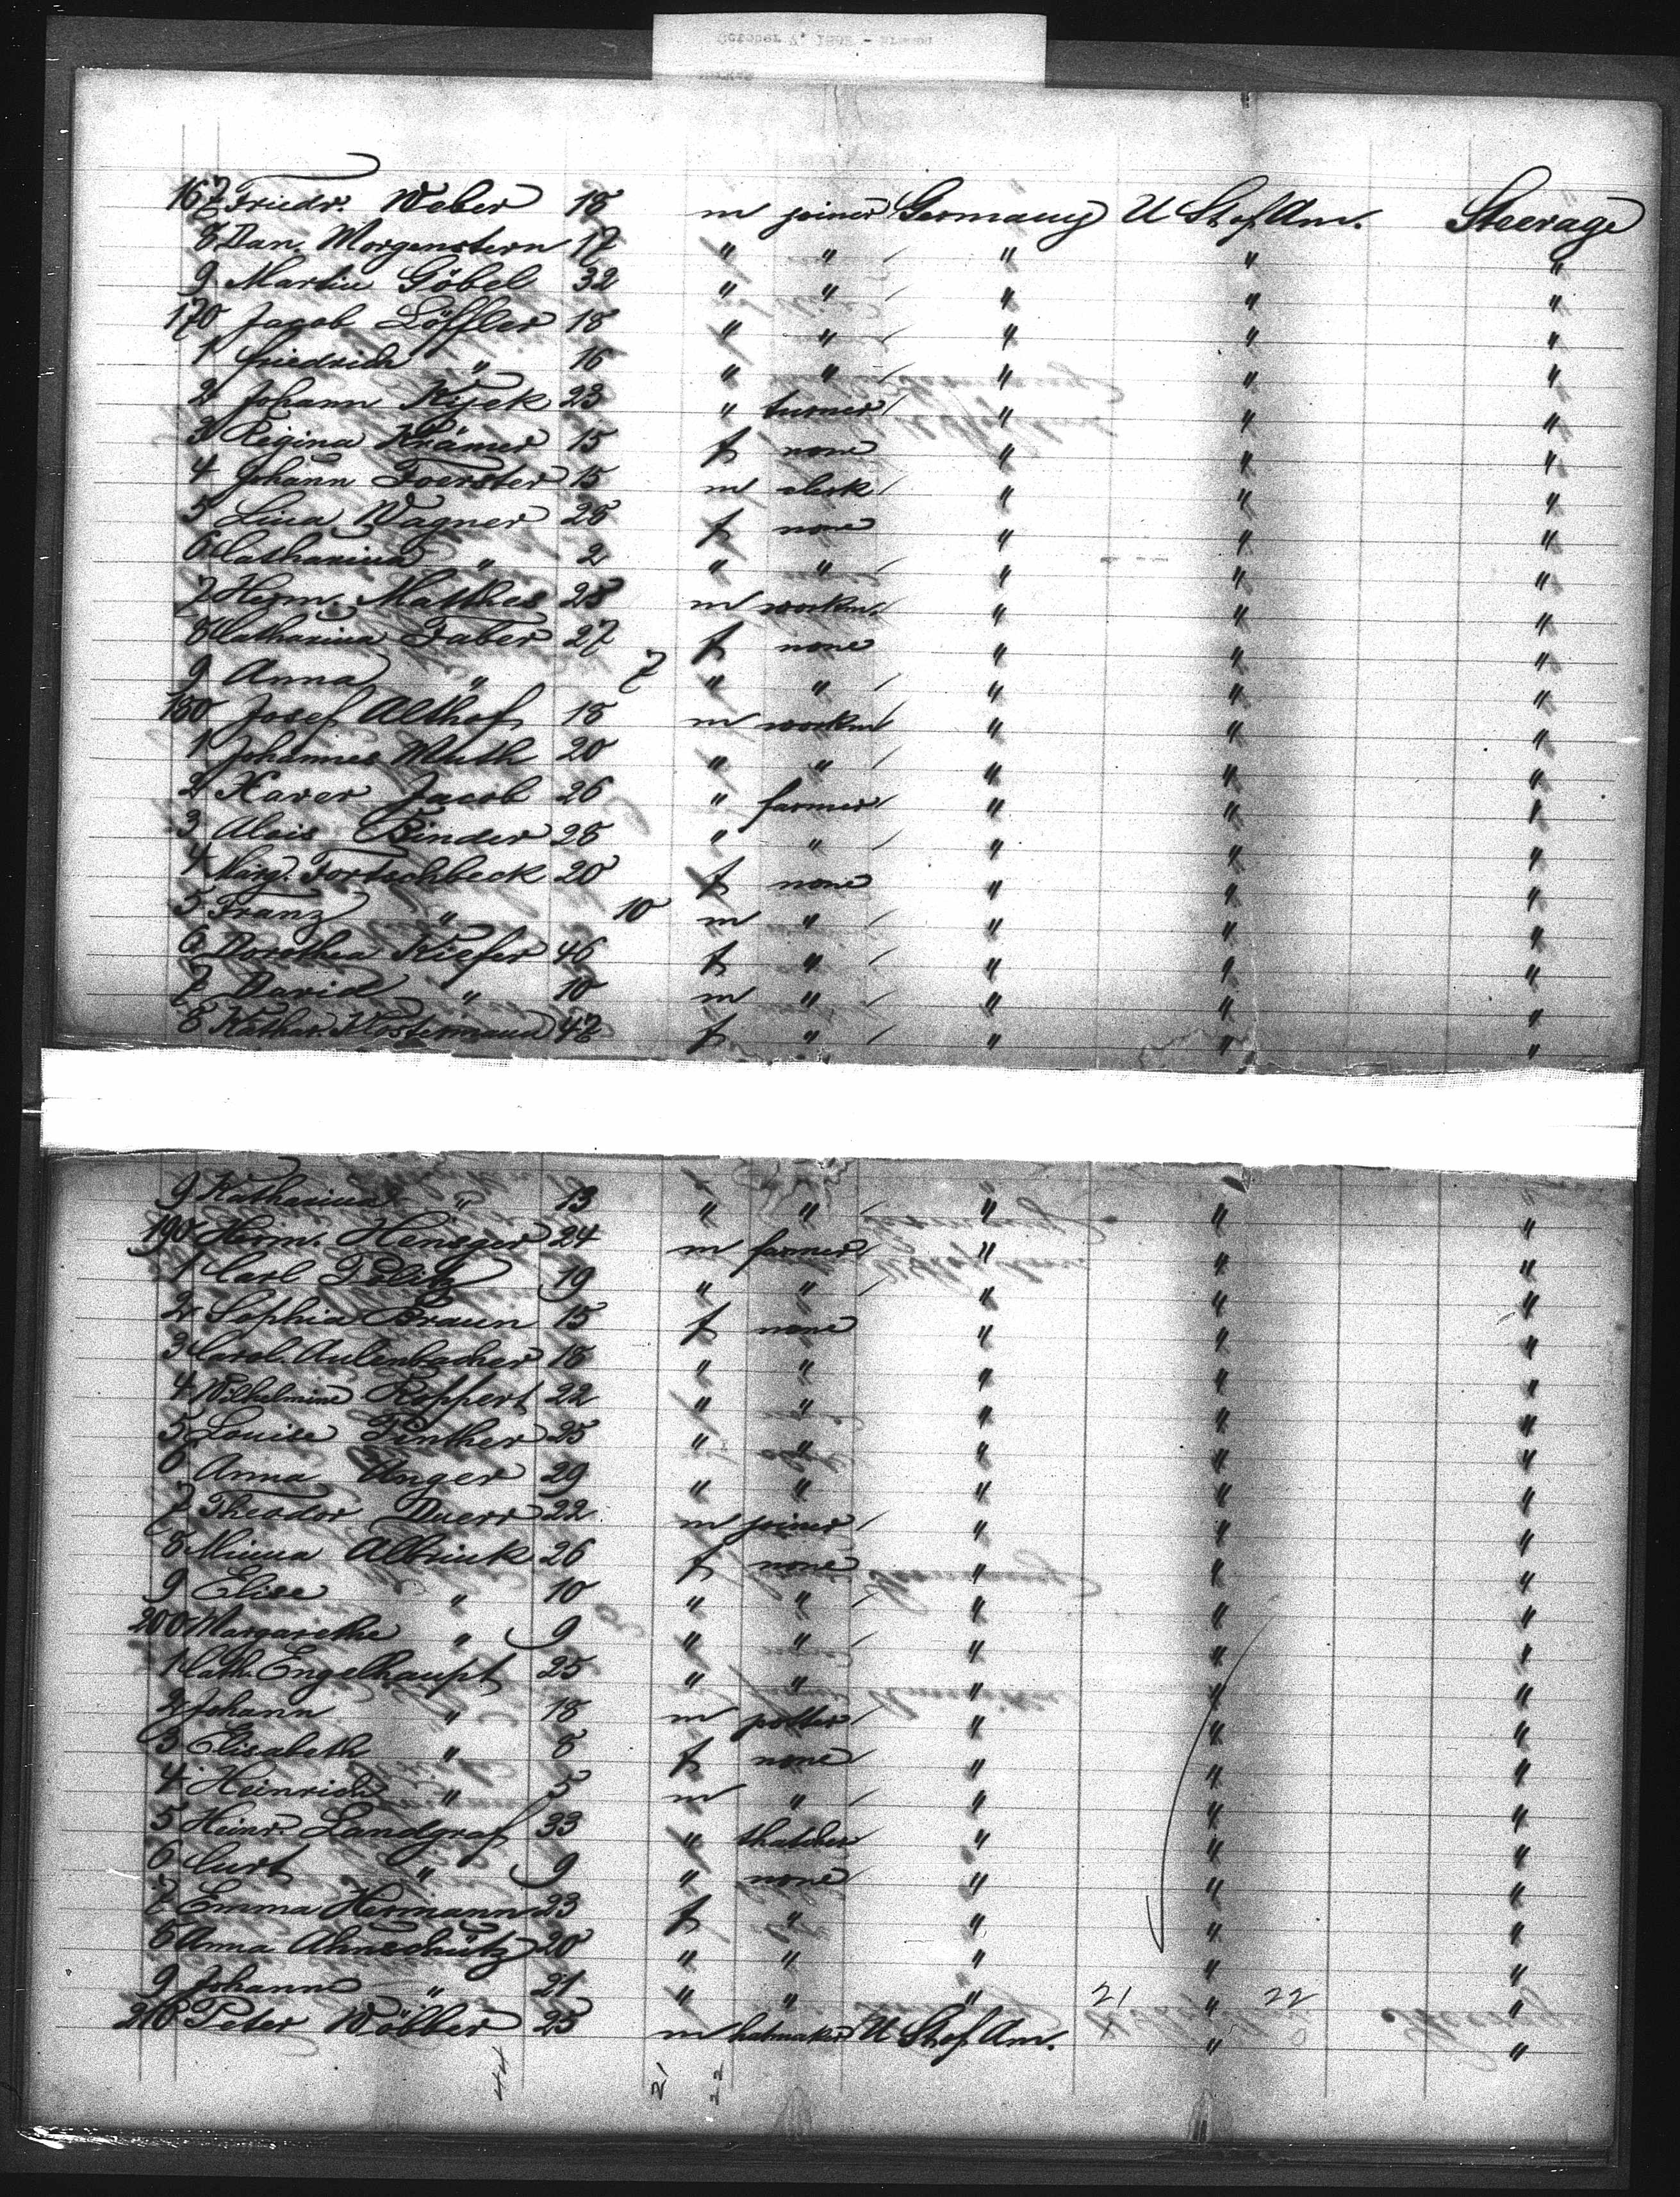 167 Friedr. Weber 18 m joiner Germany U St of Am. Steerage
8 Dan. Morgenstern 17 " " / " " "
9 Martin Göbel 32 " " / " " "
170 Jacob Löffler 18 " " / " " "
1 Friedrich " 16 " " / " " "
2 Johann Kijek 23 " turner / " " "
3 Regina Krämer 15 f none " " "
4 Johann Foerster 15 m clerk / " " "
5 Lina Wagner 26 f none " " "
6 Catharina " 2 " " / " " "
7 Herm. Matthes 28 m workm. " " "
8 Catharina Faber 27 f none " " "
9 Anna " 7 " " / " " "
180 Josef Althof 18 m workm " " "
1 Johannes Muth 20 " " / " " "
2 Xaver Jacob 26 " farmer / " " "
3 Alois Binder 28 " " / " " "
4 Marg. Fortschbeck 20 f none " " "
5 Franz " 10 m " / " " "
6 Dorothea Kiefer 46 f " / " " "
7 David " 10 m " / " " "
8 Kathar. Klostermann 42 f " / " " "
9 Katharina " 13 " " / " " "
190 Herm. Hensger 24 m farmer / " " "
1 Carl Politz 19 " " / " " "
2 Sophia Braun 15 f none " " "
3 Carol. Aulenbacher 18 " " " " "
4 Wilhelmine Roppert 22 " " " " "
5 Louise Penther 25 " " " " "
6 Anna Anger 29 " " " " "
7 Theodor Duerr 22 m joiner / " " "
8 Minna Albrink 26 f none " " "
9 Elise " 10 " " / " " "
200 Margarethe " 9 " " / " " "
1 Cath. Engelhaupt 25 " " " " "
2 Johann " 18 m potter / " " "
3 Elisabeth " 8 f none / " " "
4 Heinrich " 5 m " / " " "
5 Heinr. Landgraf 33 " thatcher " " "
6 Curt " 9 " none " " "
7 Emma Hermann 23 f " " " "
8 Anna Ahnschütz 20 " " " " "
9 Johanne " 21 " " " 21 " 22 "
210 Peter Wöbber 25 m hatmaker U St of Am. " "
44 21 22